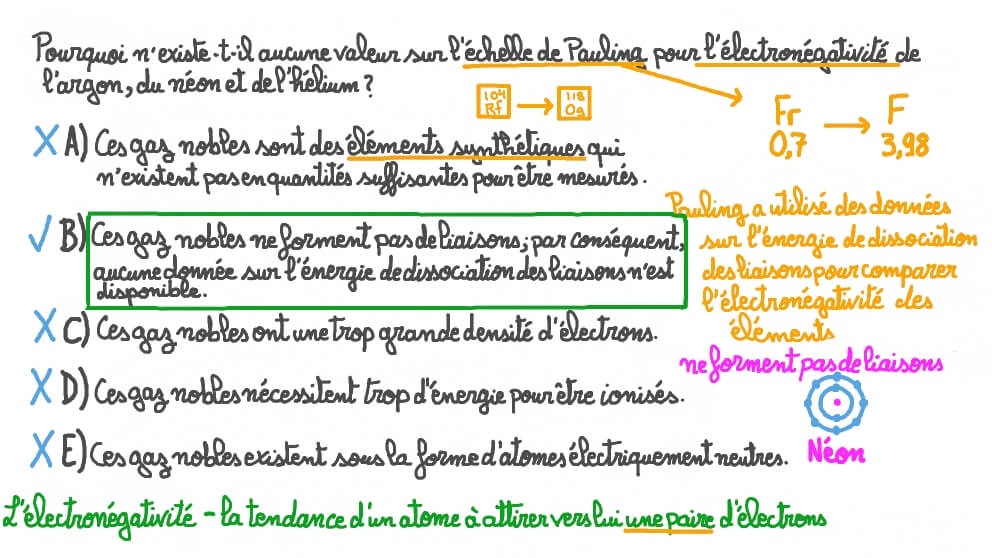 Pourquoi n'existe-t-il aucune valeur sur l'échelle de Pauling pour l'électronégativité de
l'argon, du néon et de l'hélium ?
104
Rf
118
Og
Fr
0,7
F
3,98
A) Ces gaz nobles sont des éléments synthétiques qui
n'existent pas en quantités suffisantes pour être mesurés.
Pauling a utilisé des données
sur l'énergie de dissociation
des liaisons pour comparer
l'électronégativité des
éléments
B) Ces gaz nobles ne forment pas de liaisons ; par conséquent,
aucune donnée sur l'énergie de dissociation des liaisons n'est
disponible.
C) Ces gaz nobles ont une trop grande densité d'électrons.
ne forment pas de liaisons
D) Ces gaz nobles nécessitent trop d'énergie pour être ionisés.
E) Ces gaz nobles existent sous la forme d'atomes électriquement neutres.
Néon
L'électronégativité - la tendance d'un atome à attirer vers lui une paire d'électrons